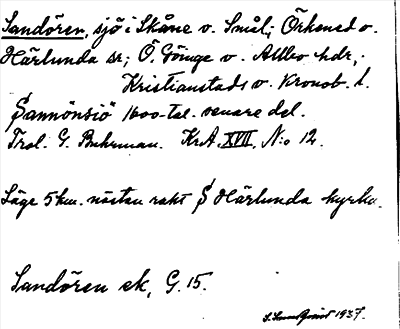 Sandören, sjö i Skåne o. Smål; Örkened o.
Härlunda sr; Ö. Göinge o. Allbo hdr;
Kristianstads o. Kronob. l.
Sannönsiö 1600-tal. senare del.
Trol. G. Buhrman. KrA. XVII. N:o 12.
Läge 5 km. nästan rakt S Härlunda kyrka.
Sandören ek, G. 15.
1937.